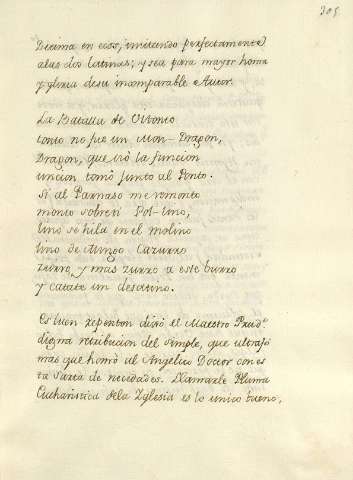 305
Dezima en ecos, imitando perfectamente
a las dos latinas; y sea para mayor honra
y gloria de su incomparable Autor.
La Batalla de Vitonto
tonto no fue un Mon-Dragon,
Dragon, que vió la funcion
uncion tomó junto al Ponto.
Si al Parnaso me remonto
monto sobre ti Pol-lino,
lino se hila en el molino
lino de Mingo Cazurro
zurro, y mas zurro a este burro
y catate un desatino.
Es buen repenton dijo el Maestro Prud.º
digna retribucion del simple, que ultrajó
mas que honró al Angelico Doctor con es
ta sarta de necedades. Llamarle Pluma
Eucharistica dela Yglesia es lo unico bueno,